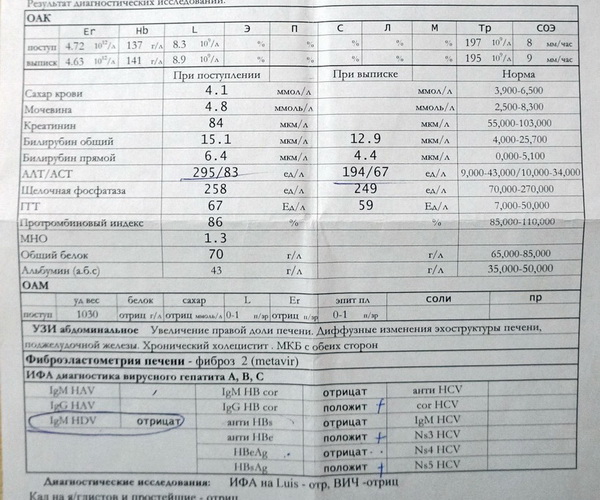 Результат диагностических исследований.
ОАК
Er Hb L Э П С Л М Тр СОЭ
поступ 4.72 10¹²/л 137 г/л 8.3 10⁹/л % % % % % 197 10⁹/л 8 мм/час
выписк 4.63 10¹²/л 141 г/л 8.9 10⁹/л % % % % % 195 10⁹/л 9 мм/час
При поступлении При выписке Норма
Сахар крови 4.1 ммол/л ммоль/л 3,900-6,500
Мочевина 4.8 ммоль/л ммоль/л 2,500-8,300
Креатинин 84 мкм/л мкм/л 55,000-103,000
Билирубин общий 15.1 мкм/л 12.9 мкм/л 4,000-25,700
Билирубин прямой 6.4 мкм/л 4.4 мкм/л 0,000-5,100
АЛТ/АСТ 295/83 ед/л 194/67 ед/л 9,000-43,000/10,000-34,000
Щелочная фосфатаза 258 ед/л 249 ед/л 70,000-270,000
ГГТ 67 Ед/л 59 Ед/л 7,000-50,000
Протромбиновый индекс 86 % % 85,000-110,000
МНО 1.3
Общий белок 70 г/л г/л 65,000-85,000
Альбумин (а.б.с) 43 г/л г/л 35,000-50,000
ОАМ
уд вес белок сахар L Er эпит пл соли пр
поступ 1030 отриц г/л отриц ммоль/л 0-1 п/зр отриц п/зр 0-1 п/зр
УЗИ абдоминальное Увеличение правой доли печени. Диффузные изменения эхоструктуры печени,
поджелудочной железы. Хронический холецистит . МКБ с обеих сторон
Фиброэластометрия печени - фиброз 2 (metavir)
ИФА диагностика вирусного гепатита А, В, С
IgM HAV IgM HB cor отрицат анти HCV
IgG HAV IgG HB cor положит + cor HCV
IgM HDV отрицат анти HBs отрицат IgM HCV
анти HBe положит + Ns3 HCV
HBeAg отрицат Ns4 HCV
HBsAg положит + Ns5 HCV
Диагностические исследования: ИФА на Luis - отр, ВИЧ -отриц
Кал на я/глистов и простейшие - отриц